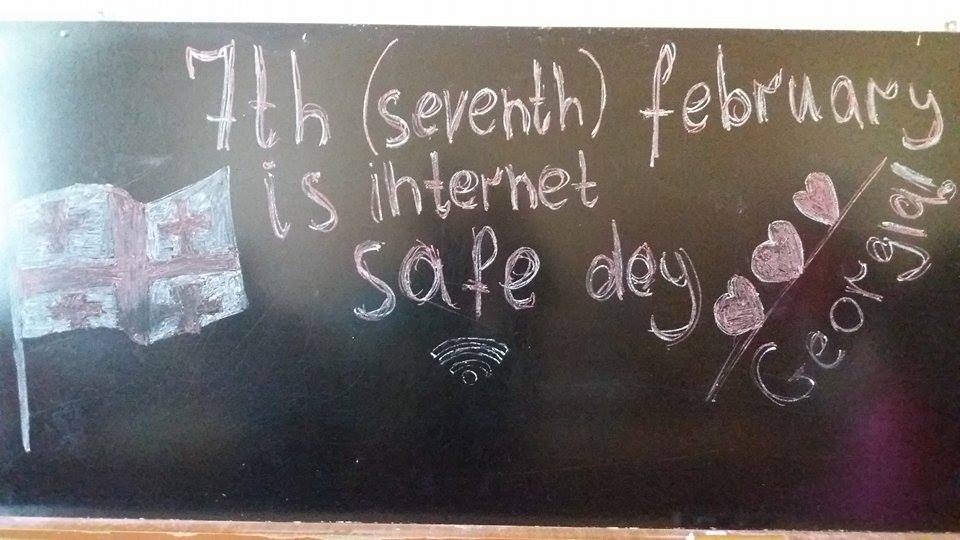 7th (seventh) february
is internet
safe dey
Georgia!